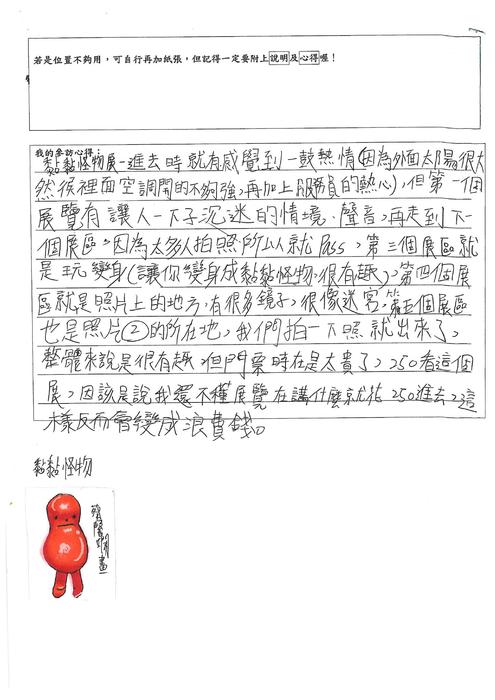 若是位置不夠用，可自行再加紙張，但記得一定要附上說明及心得喔！
我的參訪心得：
黏黏怪物展一進去時就有感覺到一股熱情(因為外面太陽很大
然後裡面空調開的不夠強，再加上服務員的熱心)，但第一個
展覽有讓人一下子沉迷的情境、聲音，再走到下一
個展區，因為太多人拍照所以就Pass，第三個展區就
是玩變身(讓你變身成黏黏怪物，很有趣)，第四個展
區就是照片上的地方，有很多鏡子，很像迷宮，第五個展區
也是照片②的所在地，我們拍一下照就出來了，
整體來說是很有趣，但門票時在是太貴了，250看這個
展，因該是說我還不懂展覽在講什麼就花250進去，這
樣反而會變成浪費錢。
黏黏怪物
畫